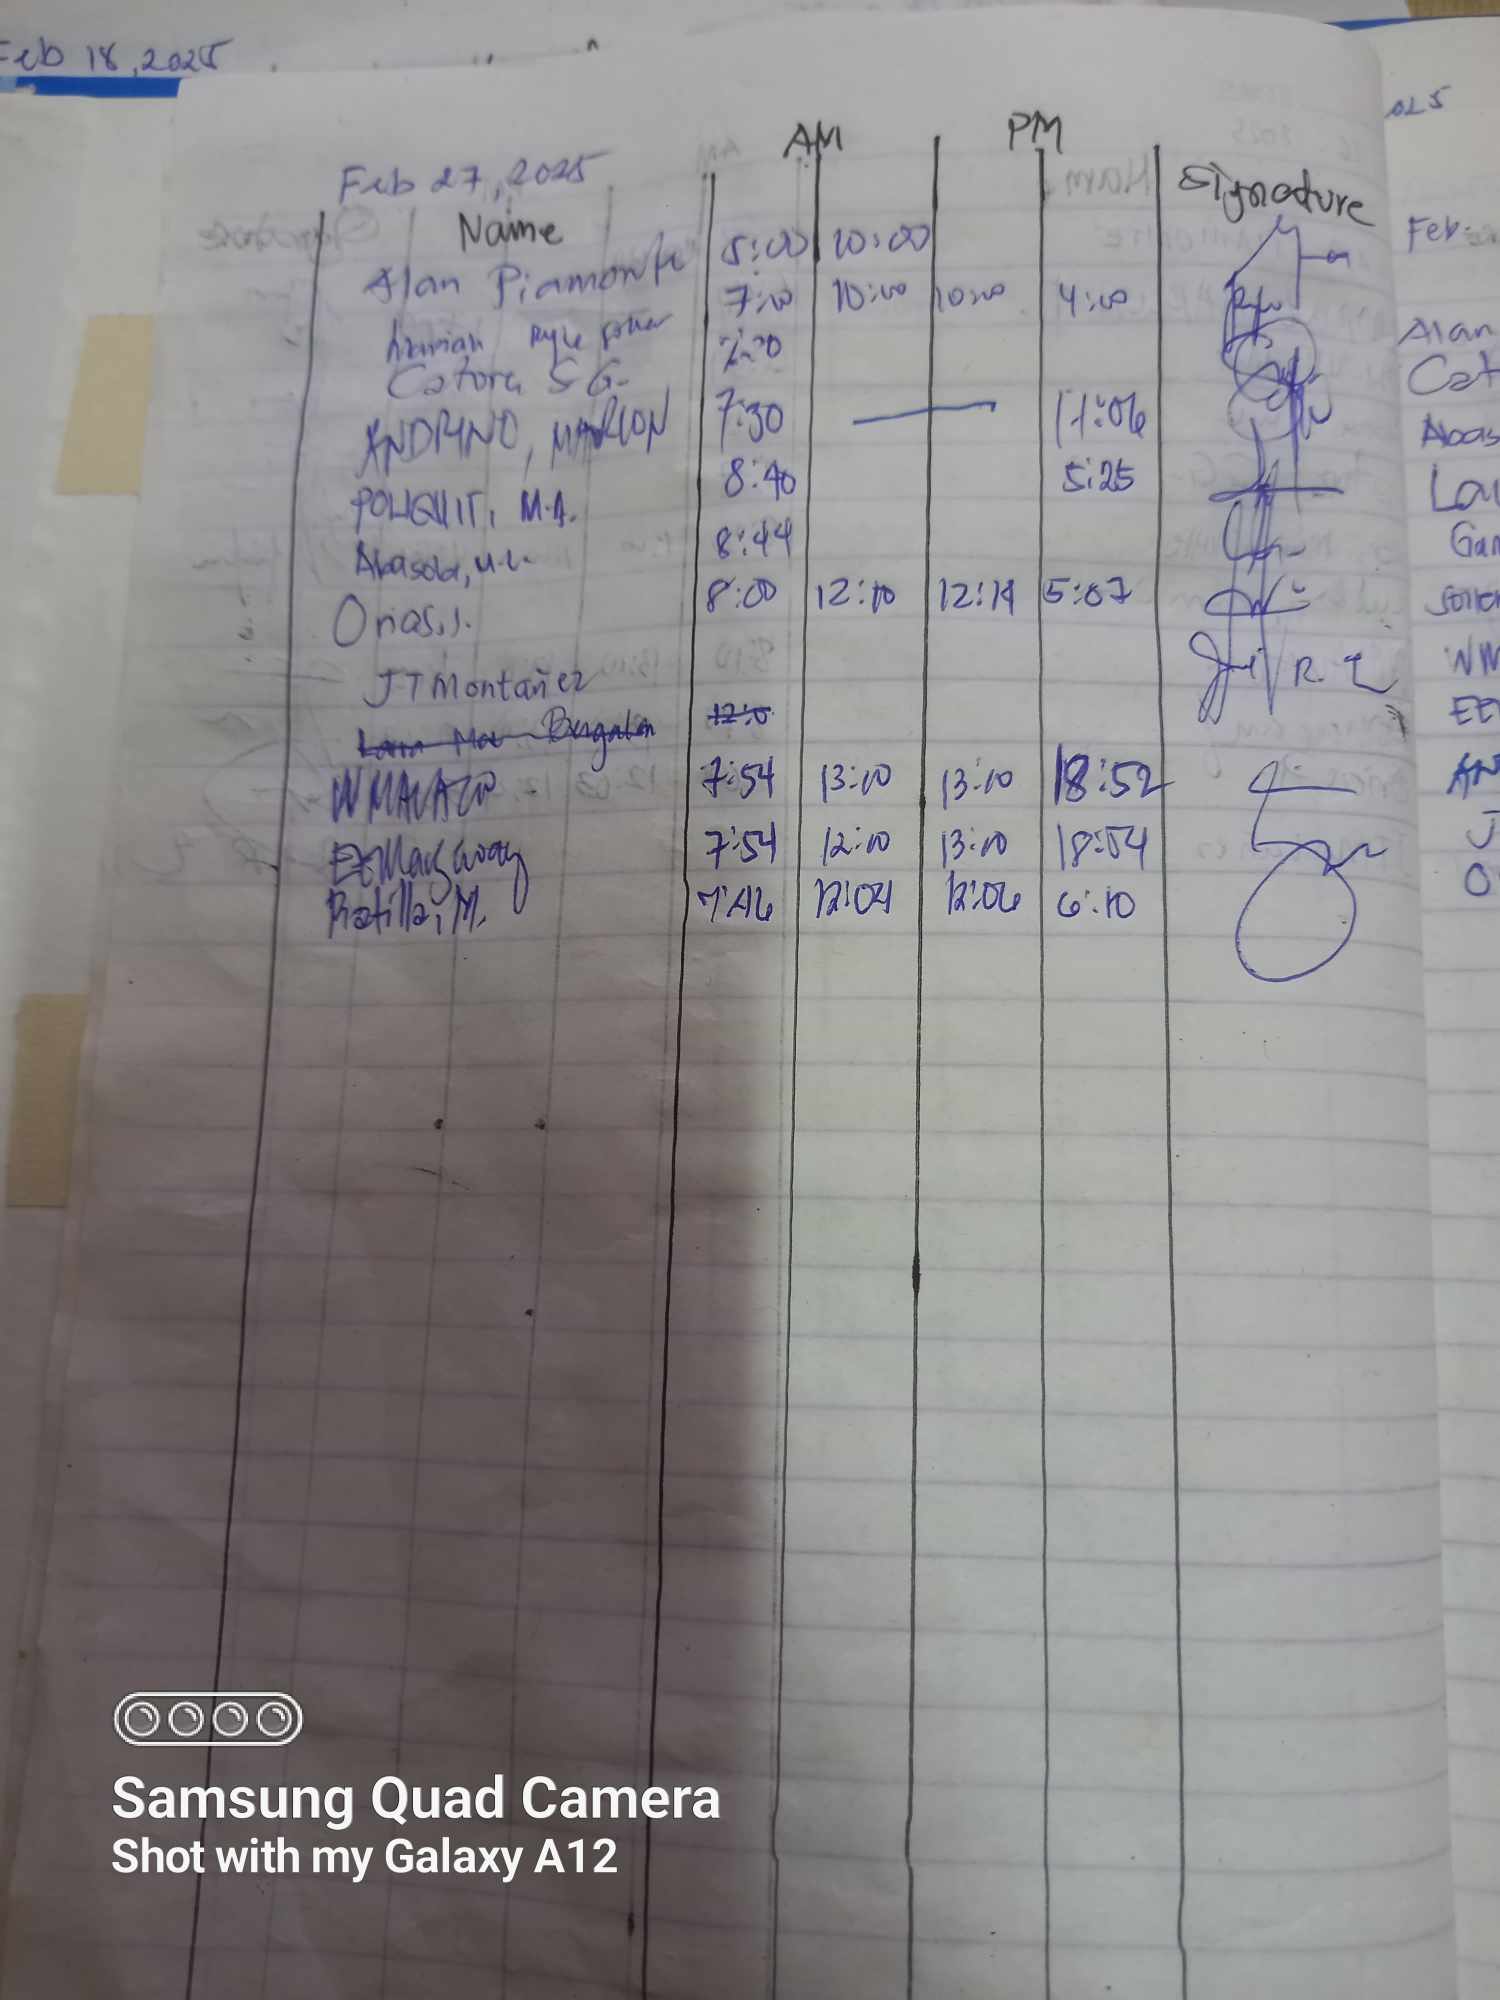 Feb 18, 2025
AM PM
Feb 27, 2025
Name Signature
Alan Piamonte 5:00 10:00
7:00 10:00 10:00 4:00
Catora, S G. 7:20
ANDRINO, MARLON 7:30 — 11:06
POLIQUIT, M.A. 8:40 5:25
Abasola, 8:44
Orias, J. 8:00 12:10 12:14 5:07
JT Montañez
Bergula 12:0
WMALAZO 7:54 13:10 13:10 18:52
EEMagway 7:54 12:10 13:10 18:54
Ratilla, M. 7:46 12:04 12:06 6:10
Feb
Alan
Cat
Abas
Lau
Gam
WM
EE
AN
J
O
Samsung Quad Camera
Shot with my Galaxy A12